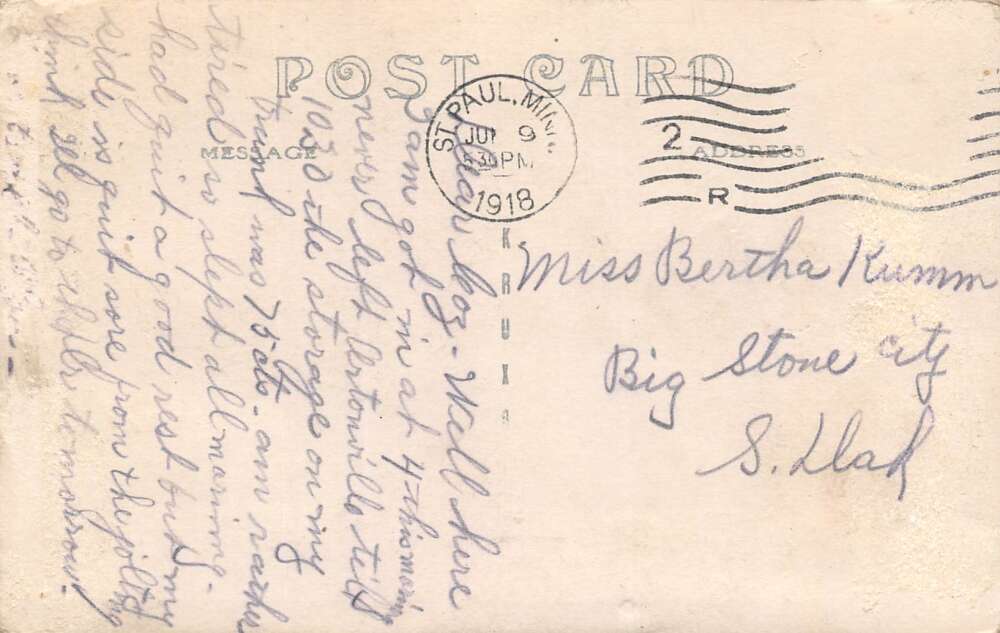 POST CARD
MESSAGE
ADDRESS
ST. PAUL, MINN.
9
530 PM
1918
2
R
KRUXO
Dear Boz- Well here
I am got in at 4-this morning
never left Ortonville till
1030 the storage on my
trunk was 75 cts. am rather
tired so slept all morning.
had quit a good rest but my
side is quit sore from the jolting
think Ill go to tomorrow.
Miss Bertha Kumm
Big Stone City
S. Dak